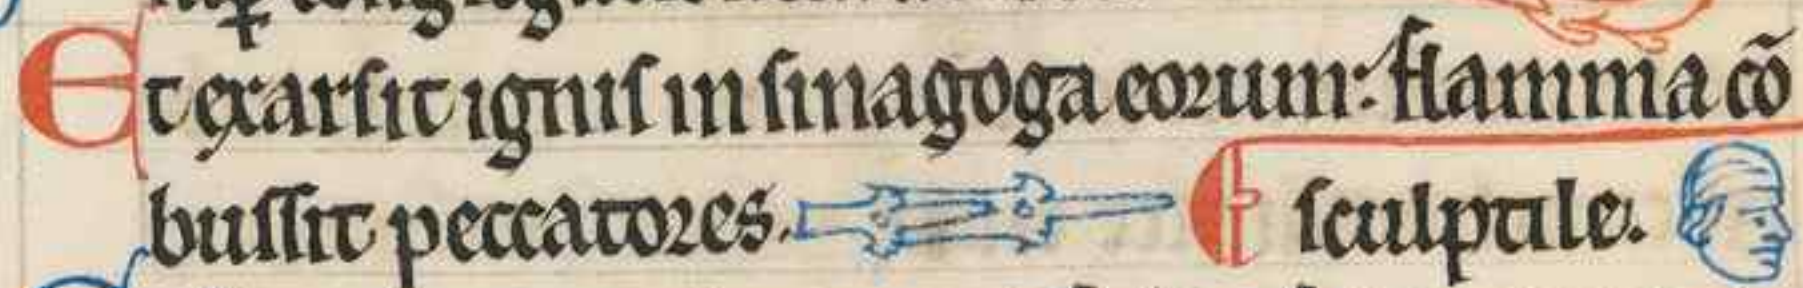 Et exarsit ignis in sinagoga eorum: flamma cō
bussit peccatores.
sculptile.